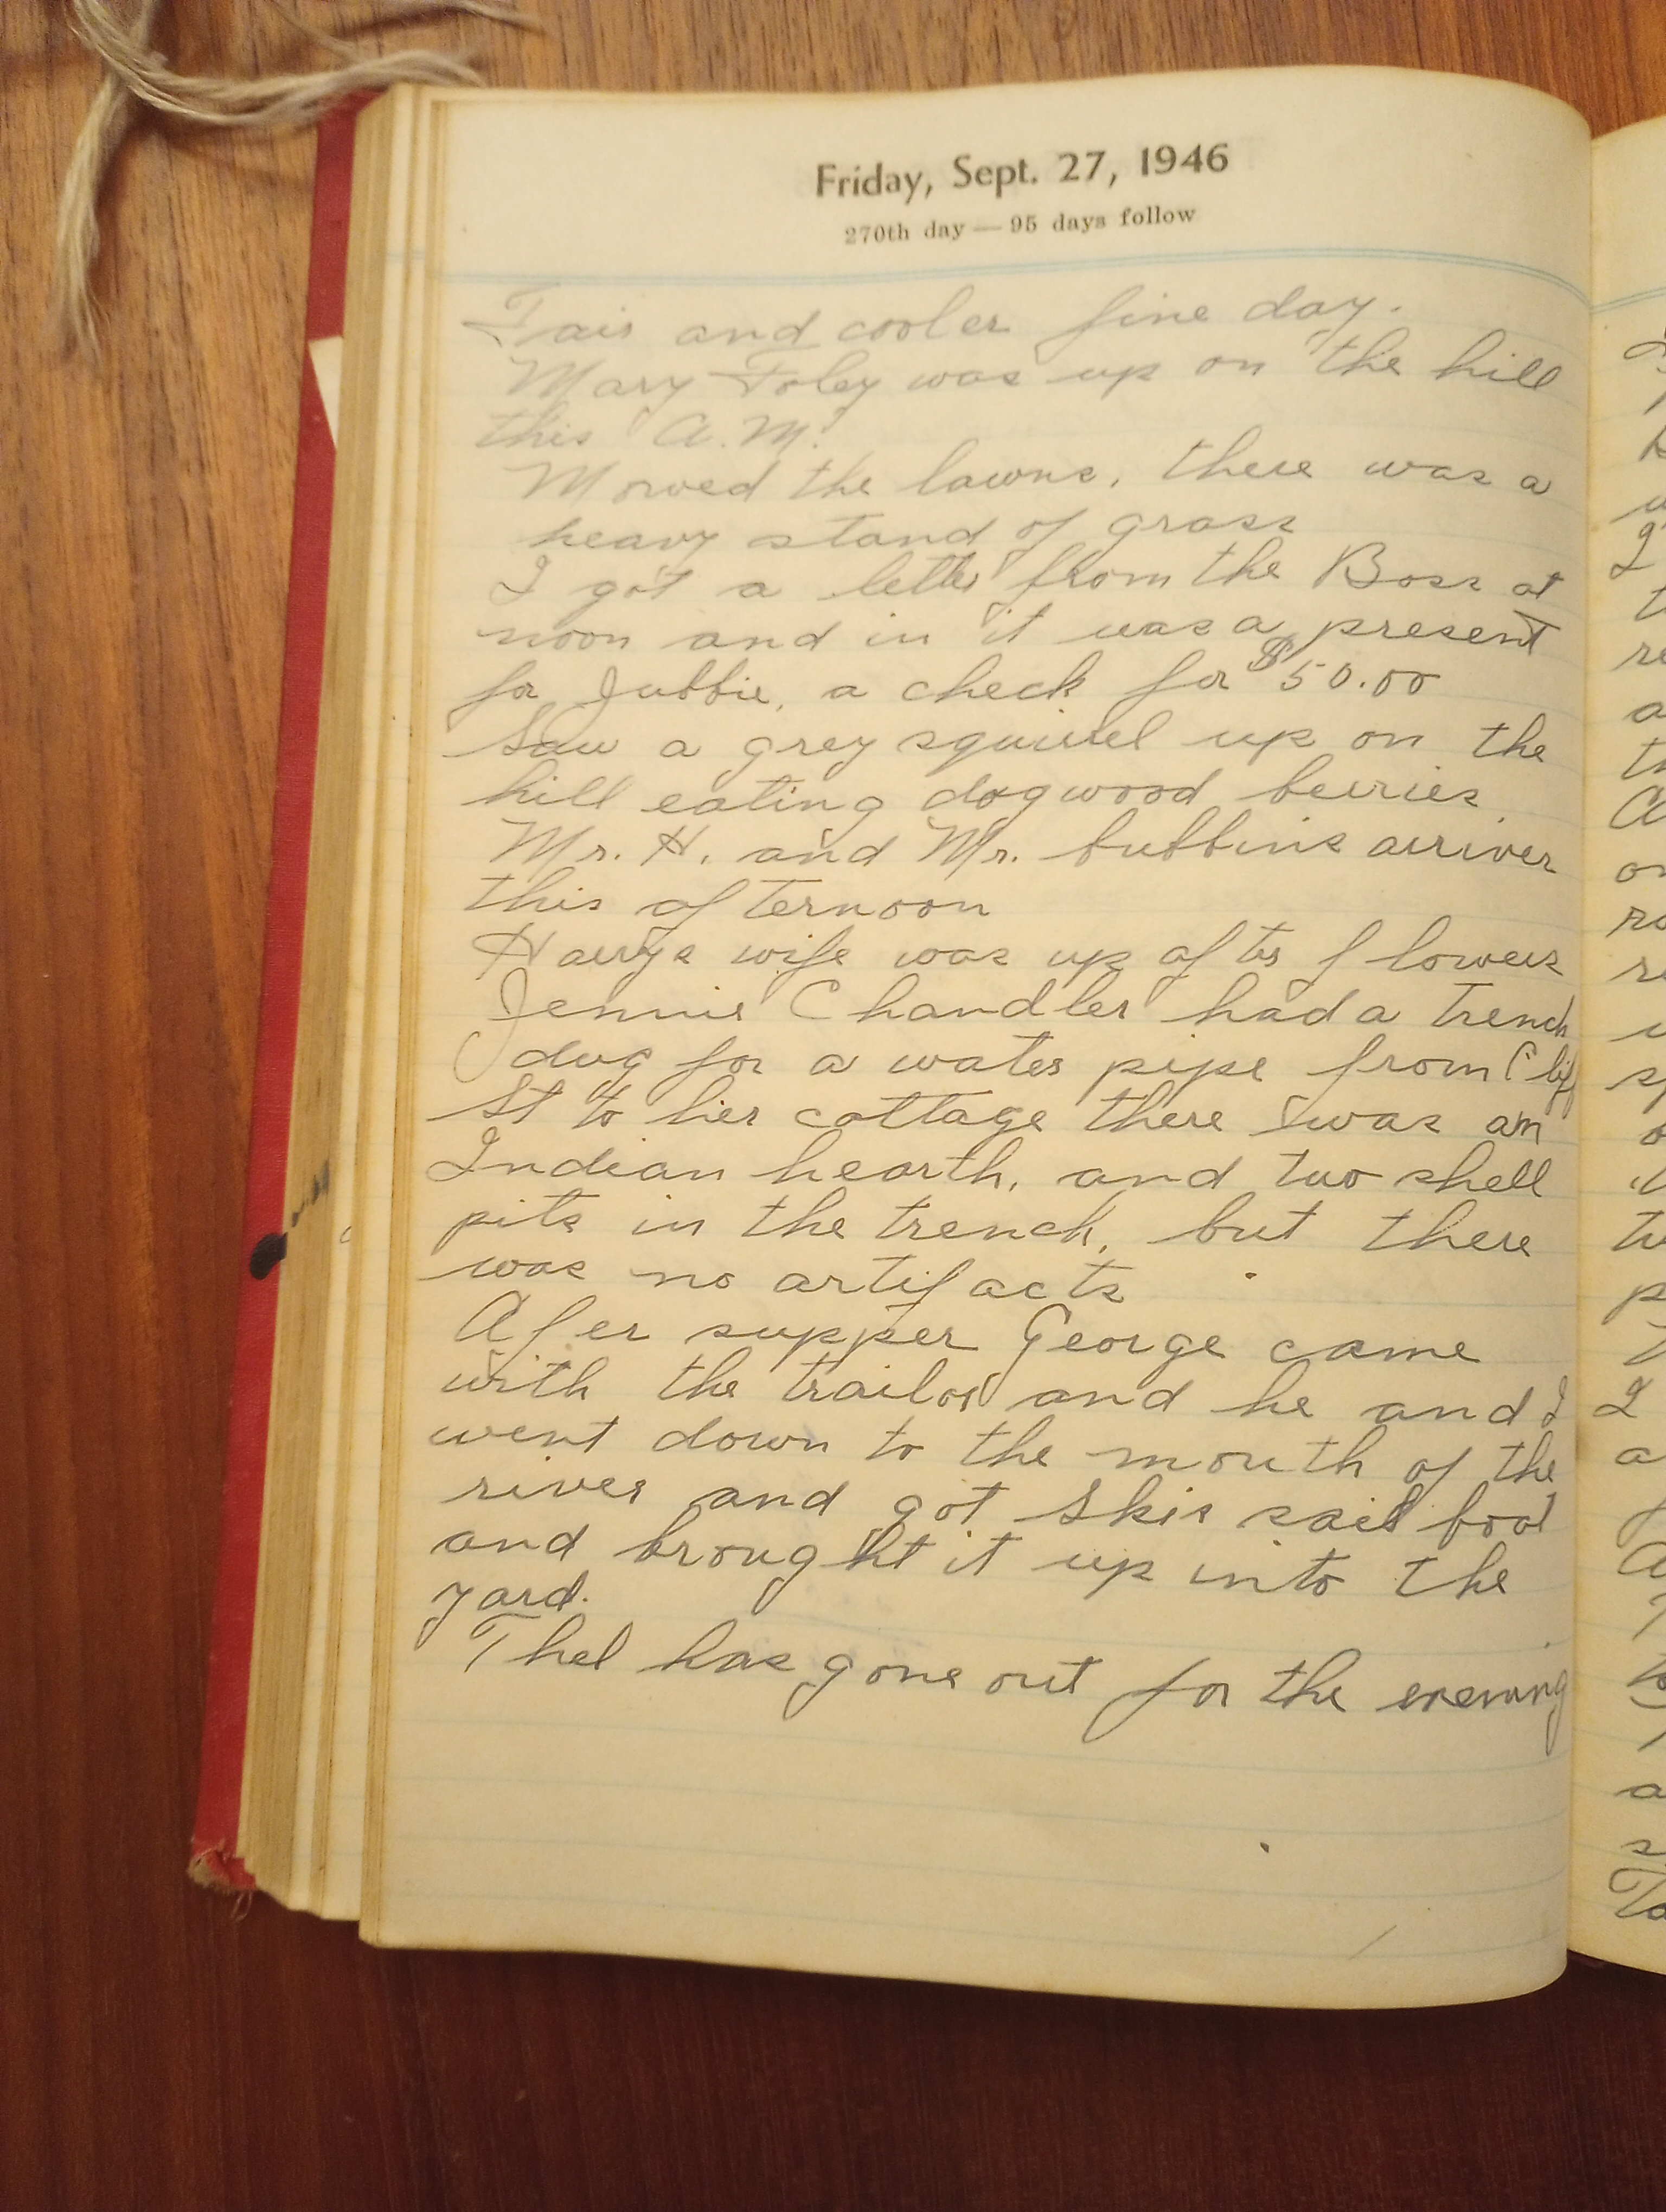 Friday, Sept. 27, 1946
270th day — 95 days follow
Fair and cooler fine day.
Mary Foley was up on the hill
this A.M.
Mowed the lawns, there was a
heavy stand of grass
I got a letter from the Boss at
noon and in it was a present
for Jubbie, a check for $50.00
Saw a grey squirrel up on the
hill eating dogwood berries
Mr. H. and Mr. bubbins arriver
this afternoon
Harrys wife was up after flowers
Jennie Chandler had a trench
dug for a water pipe from Clif
St to her cottage there was an
Indian hearth, and two shell
pits in the trench, but there
was no artifacts
Afer supper George came
with the trailor and he and I
went down to the mouth of the
river and got Skis sail boat
and brought it up into the
yard.
Thel has gone out for the evening